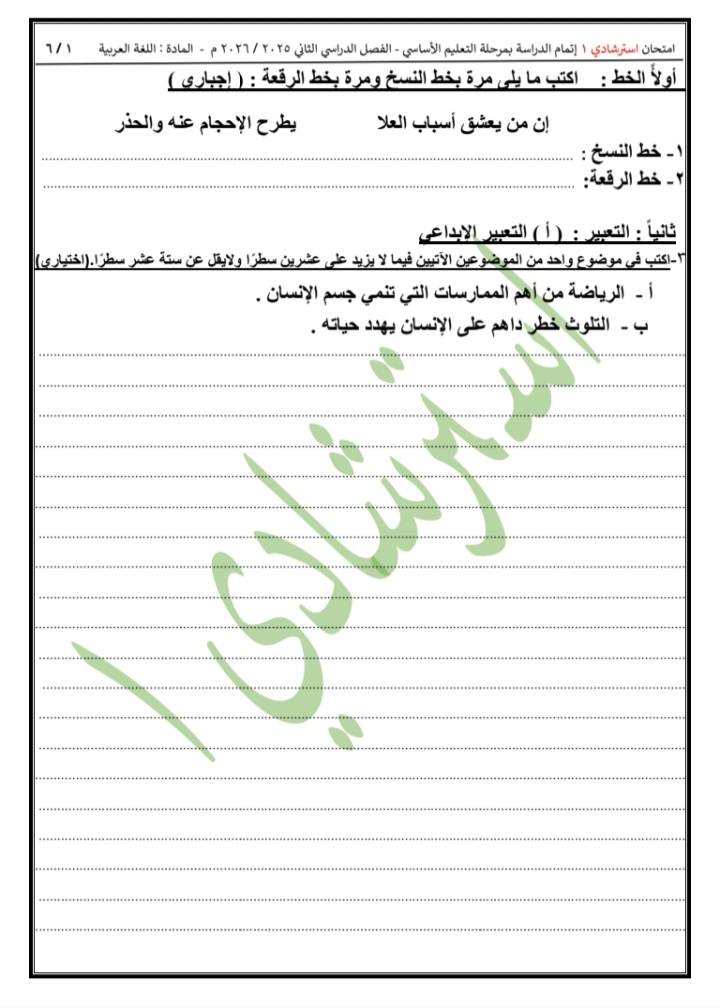 امتحان استرشادي ١ إتمام الدراسة بمرحلة التعليم الأساسي - الفصل الدراسي الثاني ٢٠٢٥ / ٢٠٢٦ م - المادة : اللغة العربية ١ / ٦
أولاً الخط : اكتب ما يلي مرة بخط النسخ ومرة بخط الرقعة : ( إجباري )
إن من يعشق أسباب العلا يطرح الإحجام عنه والحذر
١- خط النسخ :
٢- خط الرقعة:
ثانياً : التعبير : ( أ ) التعبير الإبداعي
٣-اكتب في موضوع واحد من الموضوعين الآتيين فيما لا يزيد على عشرين سطرًا ولايقل عن ستة عشر سطرًا.(اختياري)
أ - الرياضة من أهم الممارسات التي تنمي جسم الإنسان .
ب - التلوث خطر داهم على الإنسان يهدد حياته .
استرشادي ١